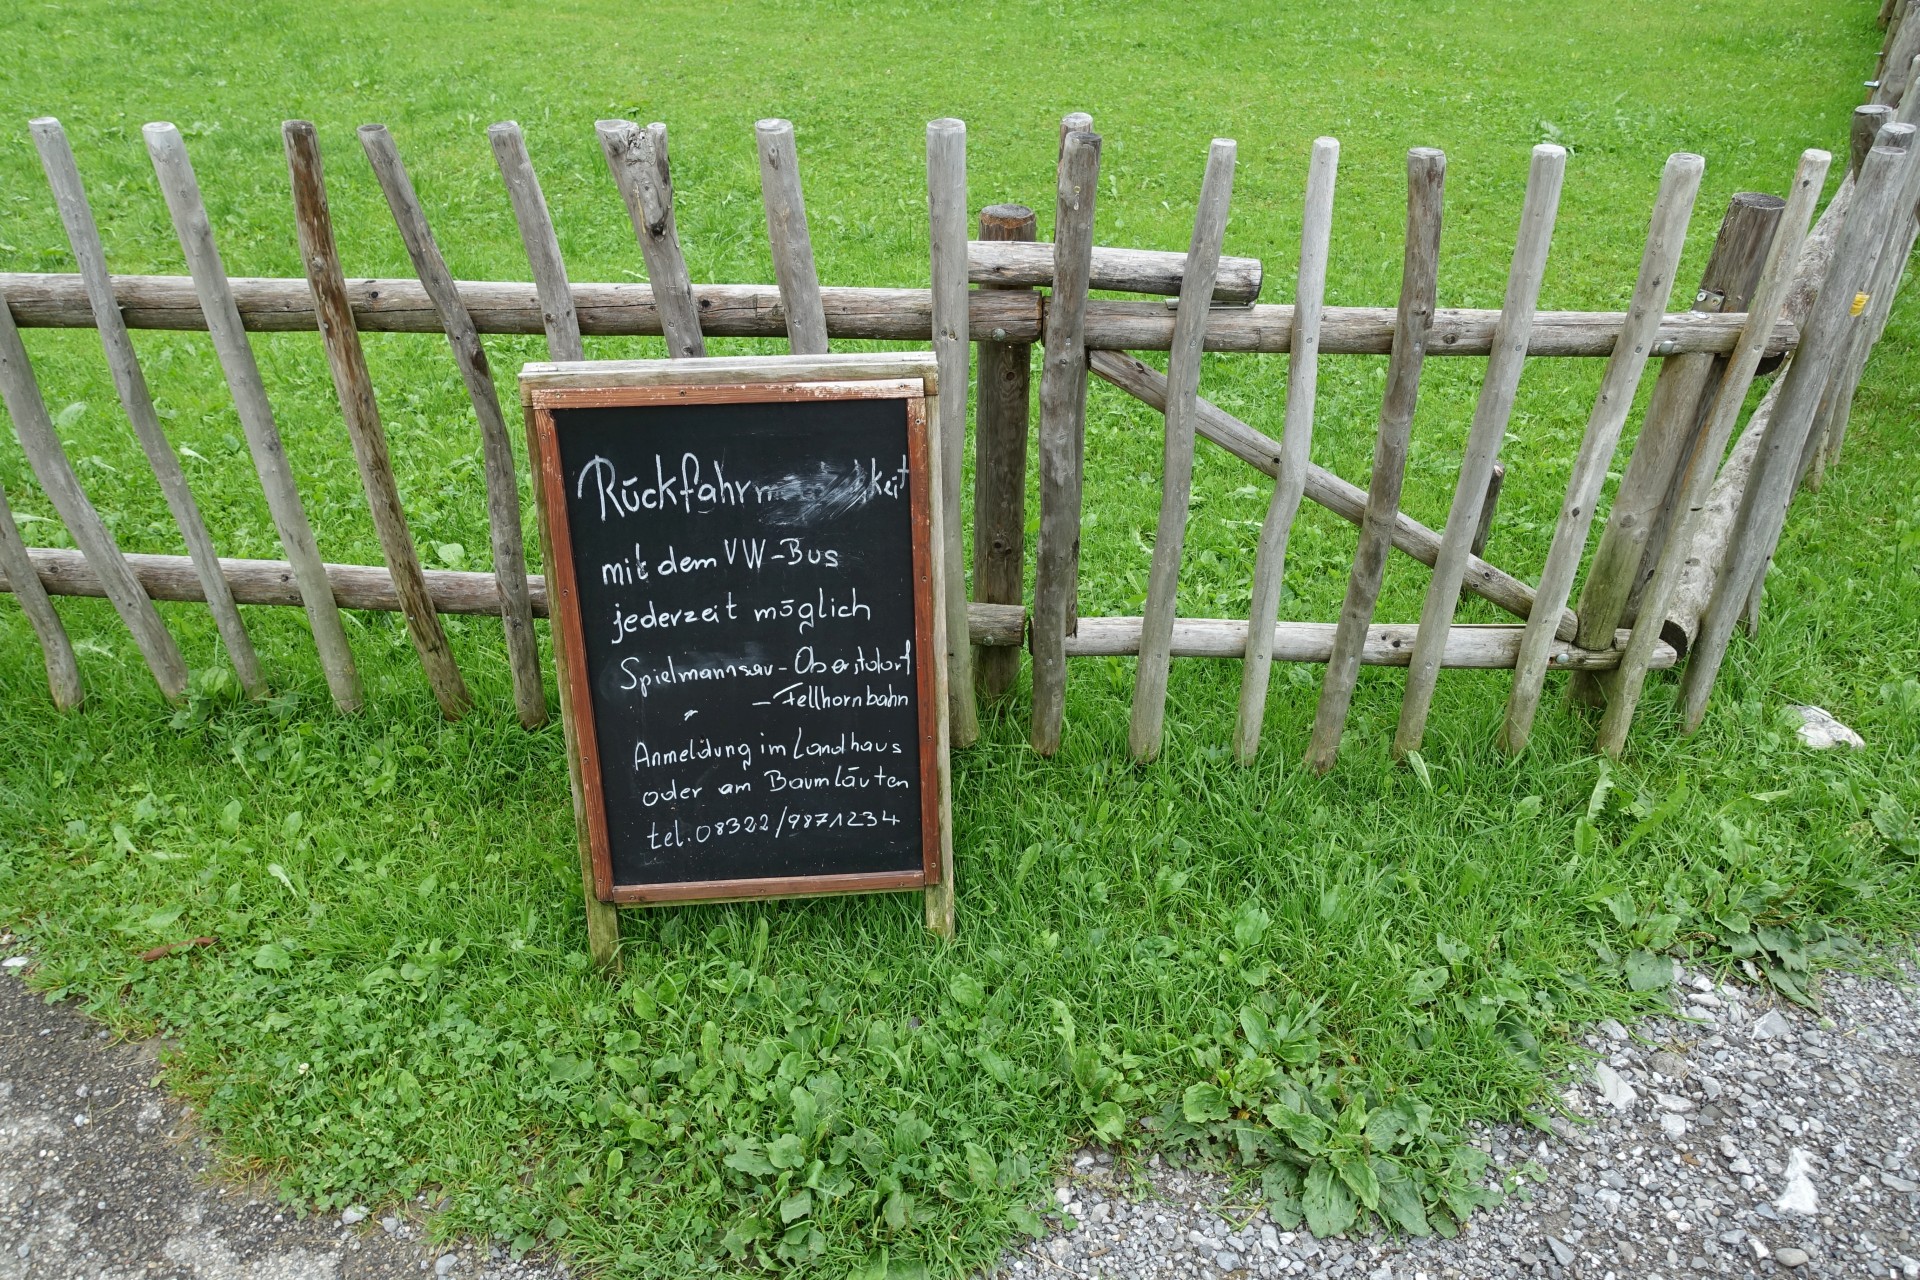 Rückfahrm
mit dem VW-Bus
jederzeit möglich
Spielmannsau-Oberstdorf
" - Fellhornbahn
Anmeldung im Landhaus
oder am Baumläuten
tel. 08322/9871234